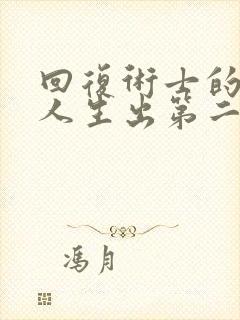 回復術士的
人生出第二
馮月